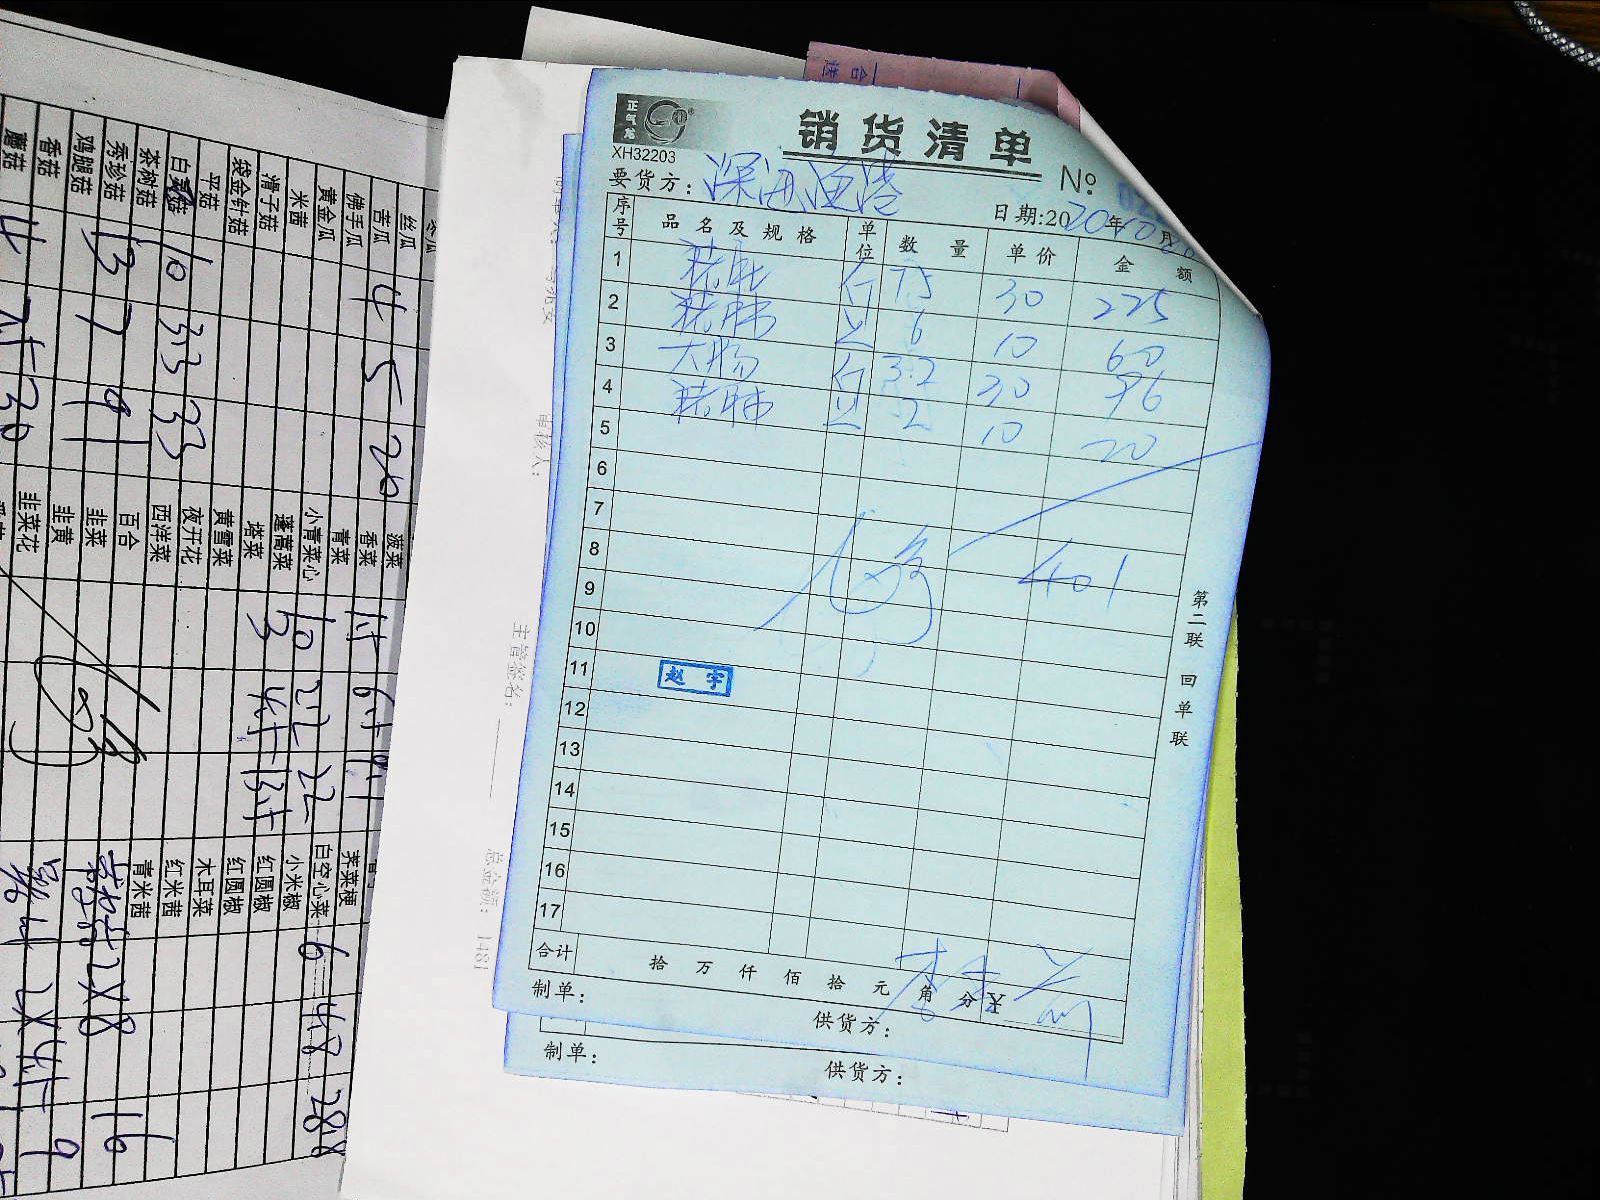 正气龙
XH32203
销货清单
№
要货方：深海渔港
日期:2020年10月
序号 品名及规格 单位 数量 单价 金额
1 斤 7.5 30 225
2 猪肺 只 6 10 60
3 大肠 斤 3.2 30 96
4 猪肺 只 2 10 20
5
6
7
8 401
9
10
11 赵宇
12
13
14
15
16
17
合计 拾万仟佰拾元角分 ¥
制单：
供货方：
制单：
供货方：
第二联 回单联
审核人：
主管签名：
总金额：1481
丝瓜
苦瓜 4 5 20
佛手瓜
黄金瓜
米茜
滑子菇
袋金针菇
平菇
白玉菇 10 3.3 33
茶树菇
秀珍菇 13 7 91
鸡腿菇
香菇
蘑菇
菠菜
香菜
青菜
小青菜心 10 2.2 22
蓬蒿菜
塔菜
黄雪菜
夜开花
西洋菜
百合
韭菜
韭黄
韭菜花
荠菜梗
白空心菜 6 4.8 28.8
小米椒
红圆椒
红圆椒
木耳菜
红米茜
青米茜
2X8 16